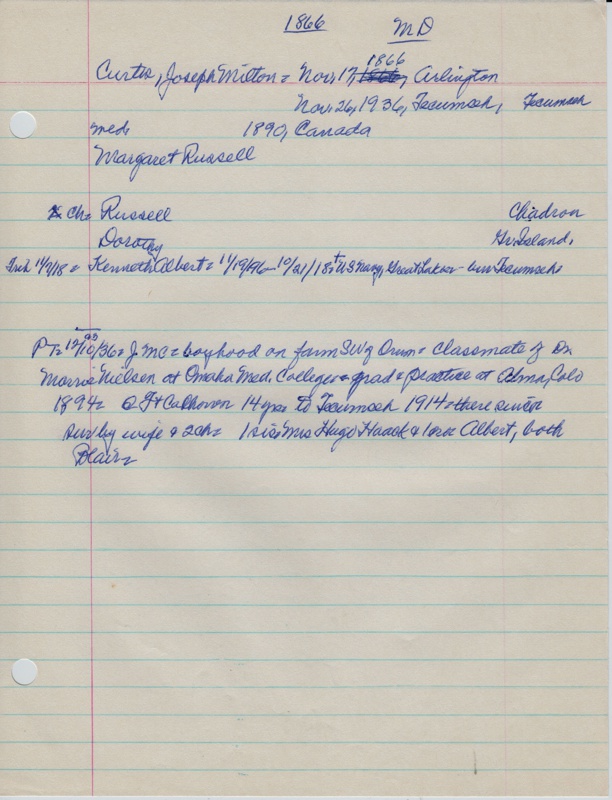 1866 MD
Curtis, Joseph Milton = Nov, 17, 1866, Arlington
Nov, 26, 1936, Tecumseh, Tecumseh
med. 1890, Canada
Margaret Russell
ch = Russell Chadron
Dorothy Gr. Island,
11/7/18 = Kenneth Albert = 11/19/96 - 10/21/18 = US Navy, Great Lakes - bur Tecumseh
PT = 12/10/36 = J. MC = boyhood on farm SW of Orum = classmate of Dr.
Morris Nielsen at Omaha Med. College = grad = practice at Alma, Colo
1894 = @ Ft Calhoun 14 yrs to Tecumseh 1914 = there since
Sur by wife & 2 ch = 1 sis Mrs Hugo Haack & 1 bro Albert, both
Blair =